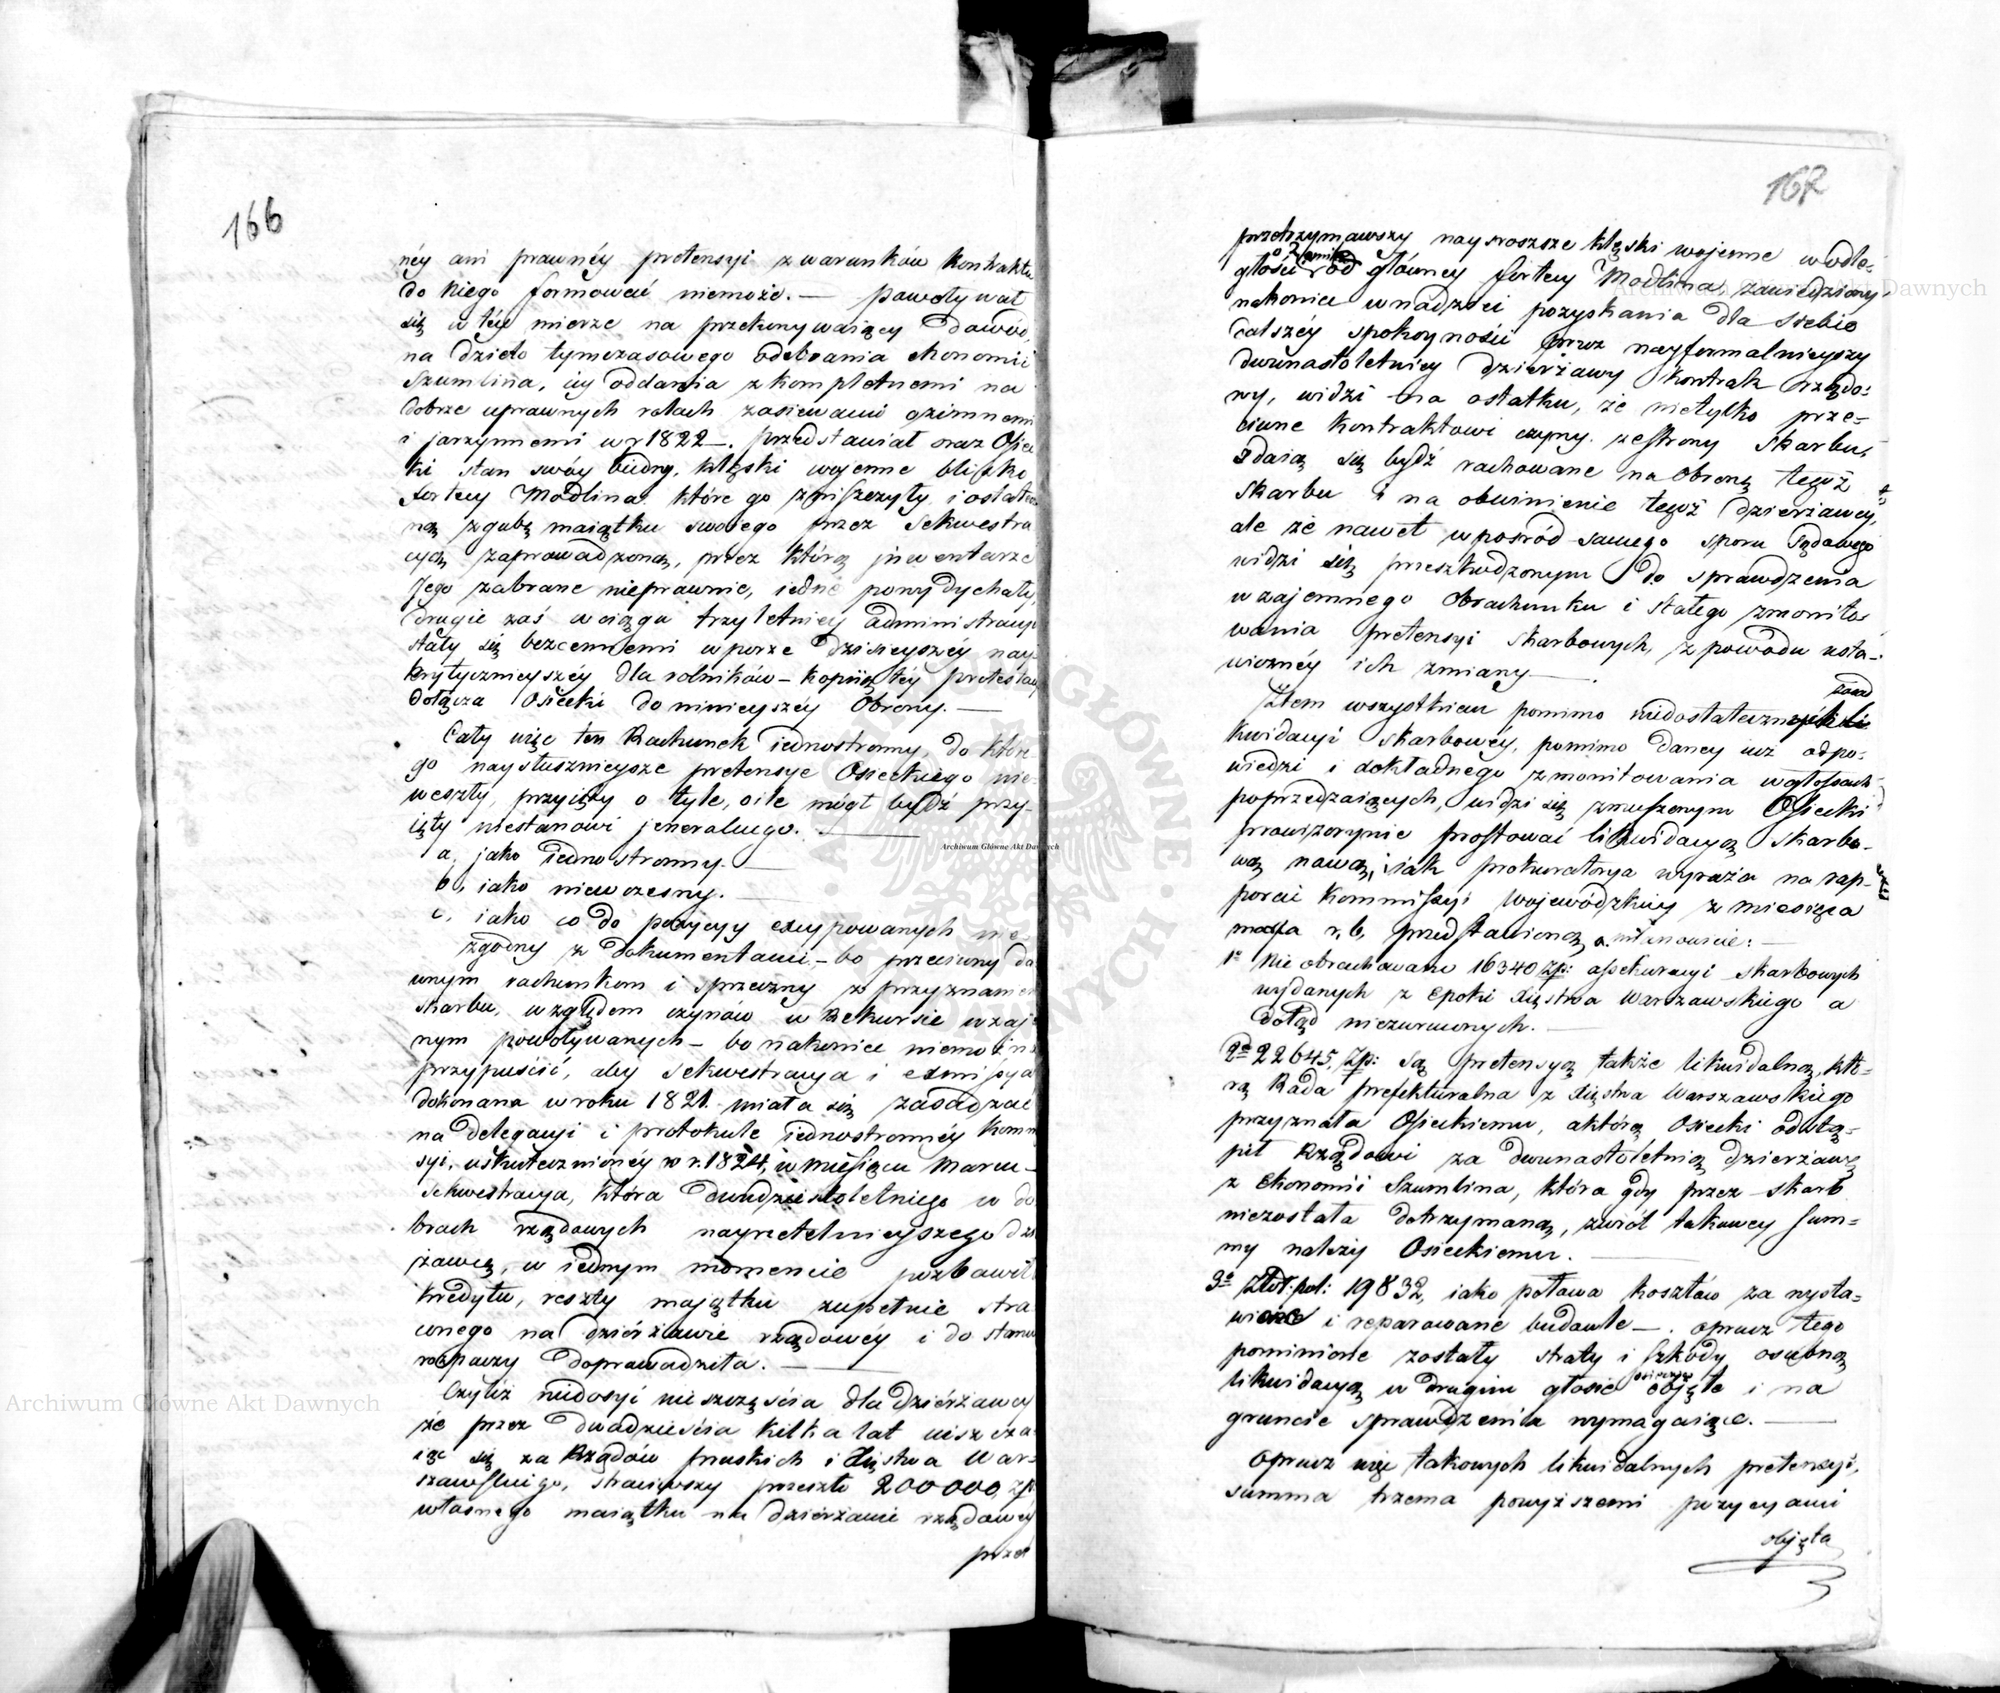 166
néy ani prawnéy pretensyi z warunków kontraktu
do Niego formować niemoże. — Powoływał
się w téy mierze na przekonywaiący dowód,
na dzieło tymczasowego odebrania ekonomii
Szumlina, czy oddania z kompletnemi na
dobrze uprawnych rolach zasiewami ozimnemi
i jarzynnemi w r 1822 —. Przedstawiał oraz Osiec
ki stan swóy biedny, klęski wojenne blisko
fortecy Modlina które go zniszczyły i ostatecz
ną zgubę maiątku swoiego przez Sekwestra
cyą zaprowadzoną, przez którą jnwentarze
Jego zabrane nieprawnie, iedne powydychały,
drugie zaś w ciągu trzyletniey administracyi
stały się bezcennemi w porze dzisieyszéy nay
krytycznieyszéy dla rolników — kopiią téy protestacyi
dołącza Osiecki do ninieyszéy Obrony. —
Cały więc ten Rachunek iednostronny, do które
go naysłusznieysze pretensye Osieckiego nie
weszły, przyięty o tyle, o ile mógł bydź przy-
ięty niestanowi jeneralnego. —
a, jako iednostronny. —
b, iako niewczesny. —
c, iako co do pozycyy excypowanych nie
zgodny z dokumentami — bo przeciwny da
wnym rachunkom i sprzeczny z przyznaniem
Skarbu, względem czynów w Rekursie wzaje
nym powoływanych — bo nakoniec niemożna
przypuścić, aby sekwestracya i exmissya
dokonana w roku 1821. miała się zasadzać
na delegacyi i protokule iednostronnéy Kommi
syi, uskutecznionéy w r. 1824, w miesiącu Marcu —
Sekwestracya, która dwudziestoletniego w do
brach rządowych nayrzetelnieyszego dzier
żawcę, w iednym momencie pozbawiła
kredytu, reszty majątku zupełnie stra
conego na dzierżawie rządowéy i do stanu
rozpaczy doprowadziła. —
Czyliż niedosyć nieszczęścia dla Dzierżawcy
że przez dwadzieścia kilka lat niszcza
iąc się za Rządów pruskich i Xięstwa War-
szawskiego, straciwszy przeszło 200000 zp
własnego maiątku na dzierżawie rządowéy
prze
167
przetrzymawszy naysroższe klęski wojenne w odle-
głości od główney fortecy Modlina, zawiedziony,
nakoniec w nadziei pozyskania dla siebie
dalszéy spokoyności przez nayformalnieyszy
dwunastoletniey dzierżawy kontrakt rządo-
wy, widzi na ostatku, że nietylko prze-
ciwne kontraktowi czyny ze strony Skarbu,
zdaią się bydź rachowane na obronę tegoż
Skarbu i na obwinienie tegoż Dzierżawcy,
ale że nawet wpośród samego sporu Sądowego
widzi się przeszkodzonym do sprawdzenia
wzajemnego obrachunku i stałego zmonito-
wania pretensyi Skarbowych, z powodu usta-
wicznéy ich zmiany —.
Ztem wszystkiem pomimo niedostateczney li
kwidacyi skarbowéy, pomimo daney iuż odpo-
wiedzi i dokładnego zmonitowania w głosach
poprzedzaiących, widzi się zmuszonym Osiecki
prowizorycznie prostować likwidacyą Skarbo-
wą nową, iak prokuratorya wyraża na rap-
porcie Kommissyi Woiewódzkiey z miesiąca
maja r, b, przedstawioną, a mianowicie: —
1o Nie obrachowano 16340 zp: assekuracyi skarbowych
wydanych z Epoki Xięstwa Warszawskiego a
dotąd niezwróconych. —
2o 22645, zp: są pretensyą także likwidalną, któ-
rą Rada prefekturalna z Xięstwa Warszawskiego
przyznała Osieckiemu, a którą Osiecki odstą-
pił Rządowi za dwunastoletnią dzierżawę
z Ekonomii Szumlina, która gdy przez Skarb
niezostała dotrzymaną, zwrót takowey sum-
my należy Osieckiemu. —
3o Złot. pol: 19832, iako połowa kosztów za wysta-
wione i reparowane budowle —. oprócz tego
pominione zostały straty i szkody osobną
likwidacyą w drugim głosie objęte i na
gruncie sprawdzenia wymagaiące. —
Oprócz więc takowych likwidalnych pretensyi,
summa trzema powyższemi pozycyami
objęta
Archiwum Główne Akt Dawnych